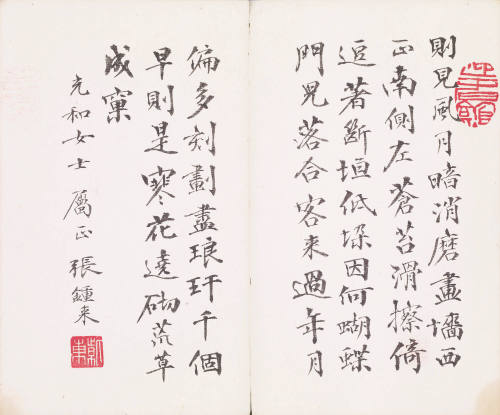 則見風月暗消磨畫墻西
正南側左蒼苔滑擦倚
逗著斷垣低垛因何蝴蝶
門兒落合客來過年月
偏多刻劃盡琅玕千個
早則是寒花遶砌荒草
成窠
充和女士 屬正 張鍾来